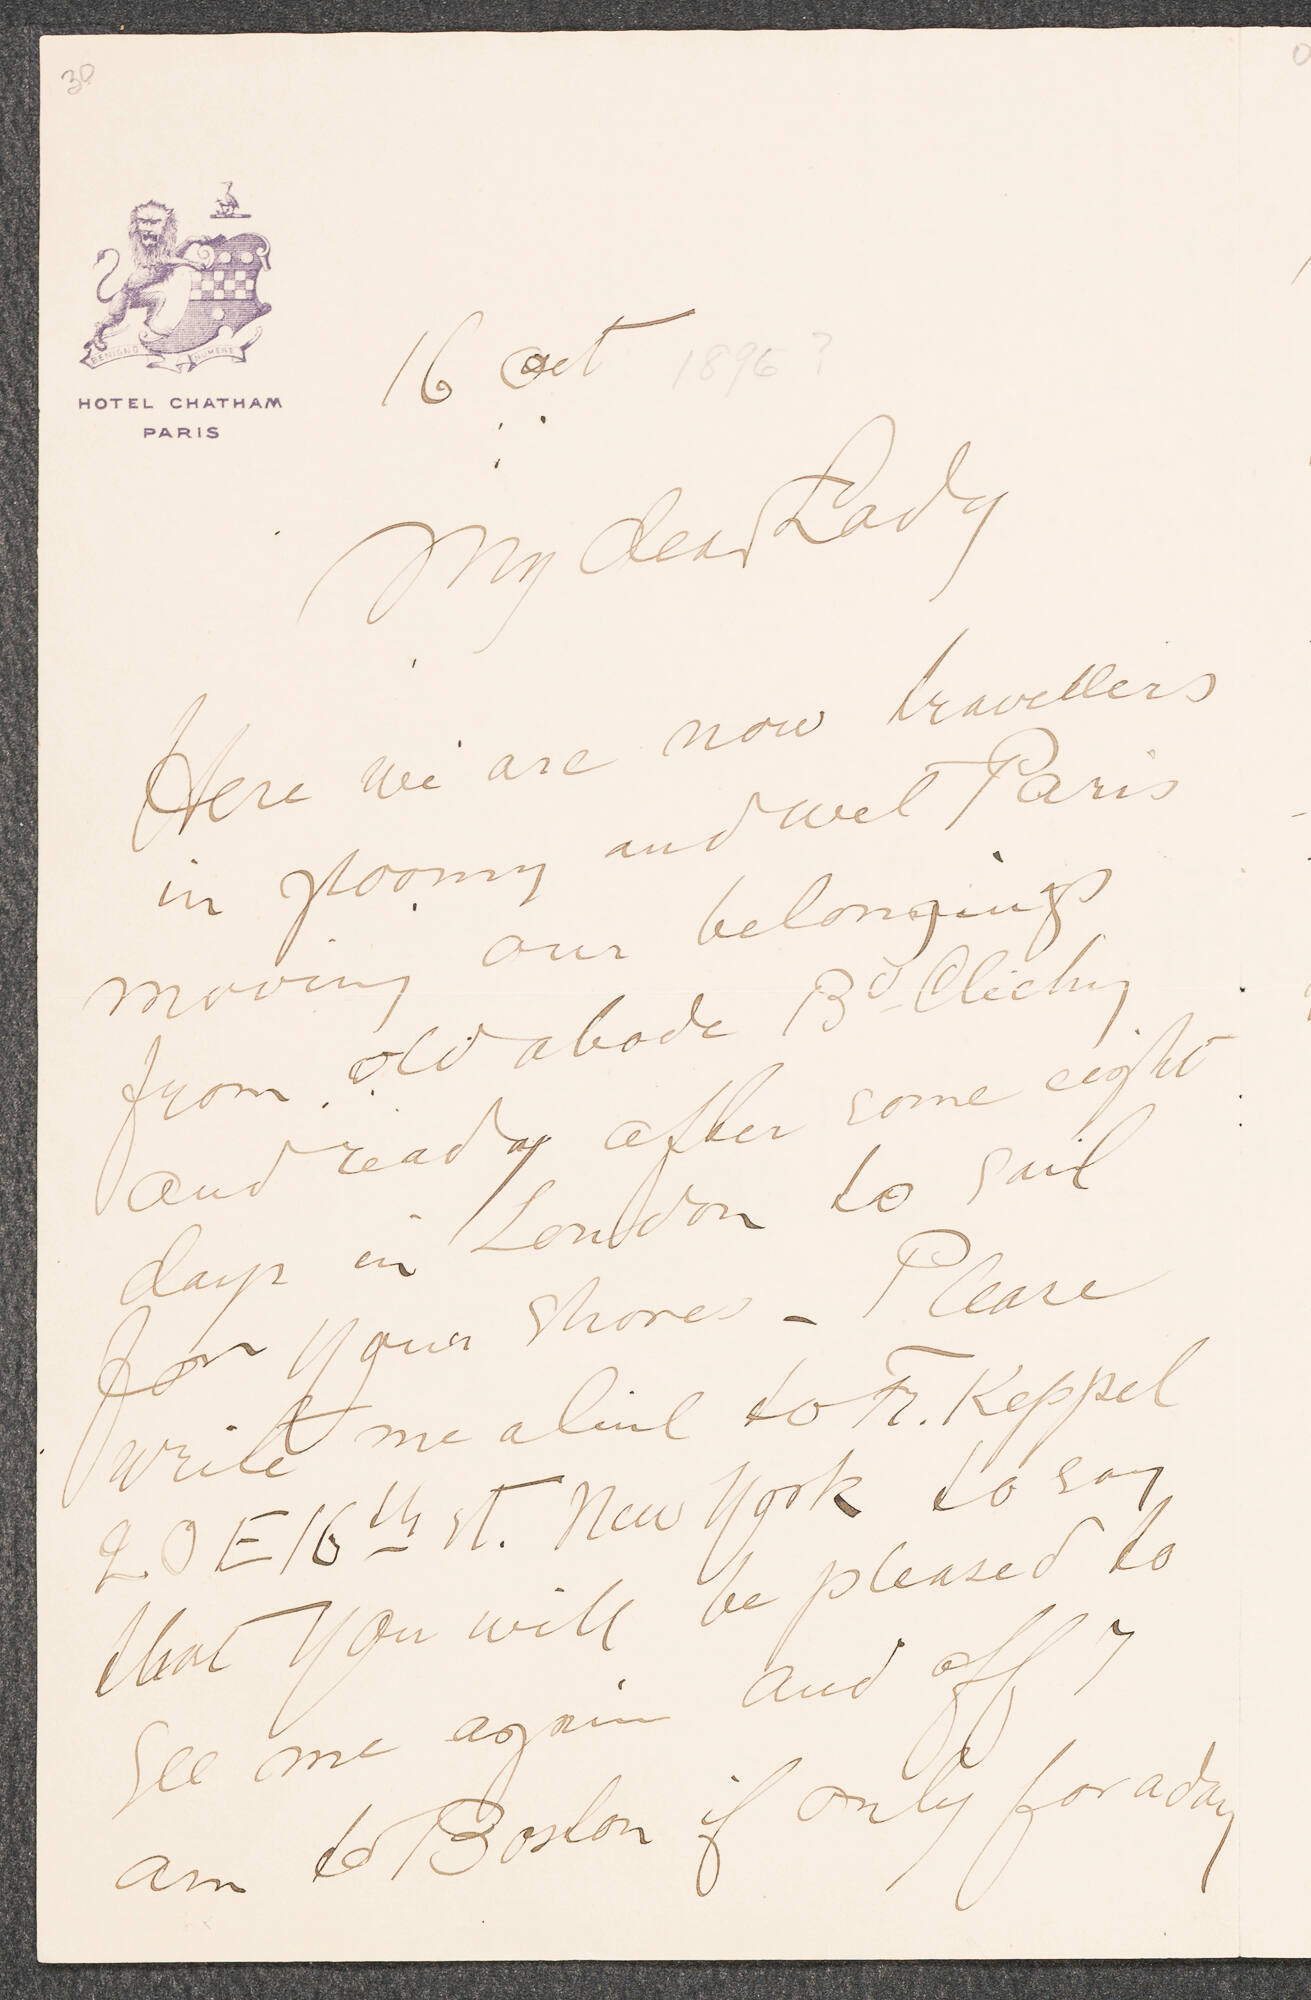 30
BENIGNO NUMINE
HOTEL CHATHAM
PARIS
16 Oct 1896?
My dear Lady
Here we are now travellers
in gloomy and wet Paris
moving our belongings
from old abode Bd Clichy
and ready after some eight
days in London to sail
for your shores - Please
write me a line to Fr. Keppel
20 E 16th St. New York to say
that you will be pleased to
see me again and off I
am to Boston if only for a day